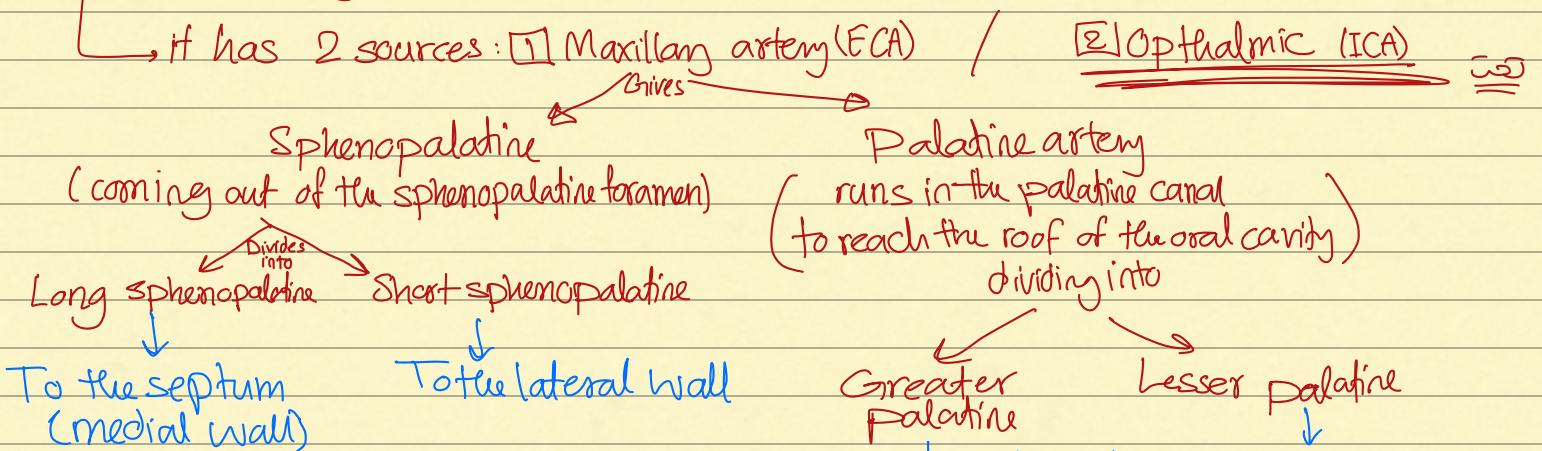 it has 2 sources: 1 Maxillary artery (ECA) / 2 Opthalmic (ICA)
Gives
Sphenopalatine
(coming out of the sphenopalatine foramen)
Divides
into
Long sphenopalatine
Short sphenopalatine
To the septum
(medial wall)
To the lateral wall
Palatine artery
(runs in the palatine canal
to reach the roof of the oral cavity)
dividing into
Greater
palatine
Lesser palatine